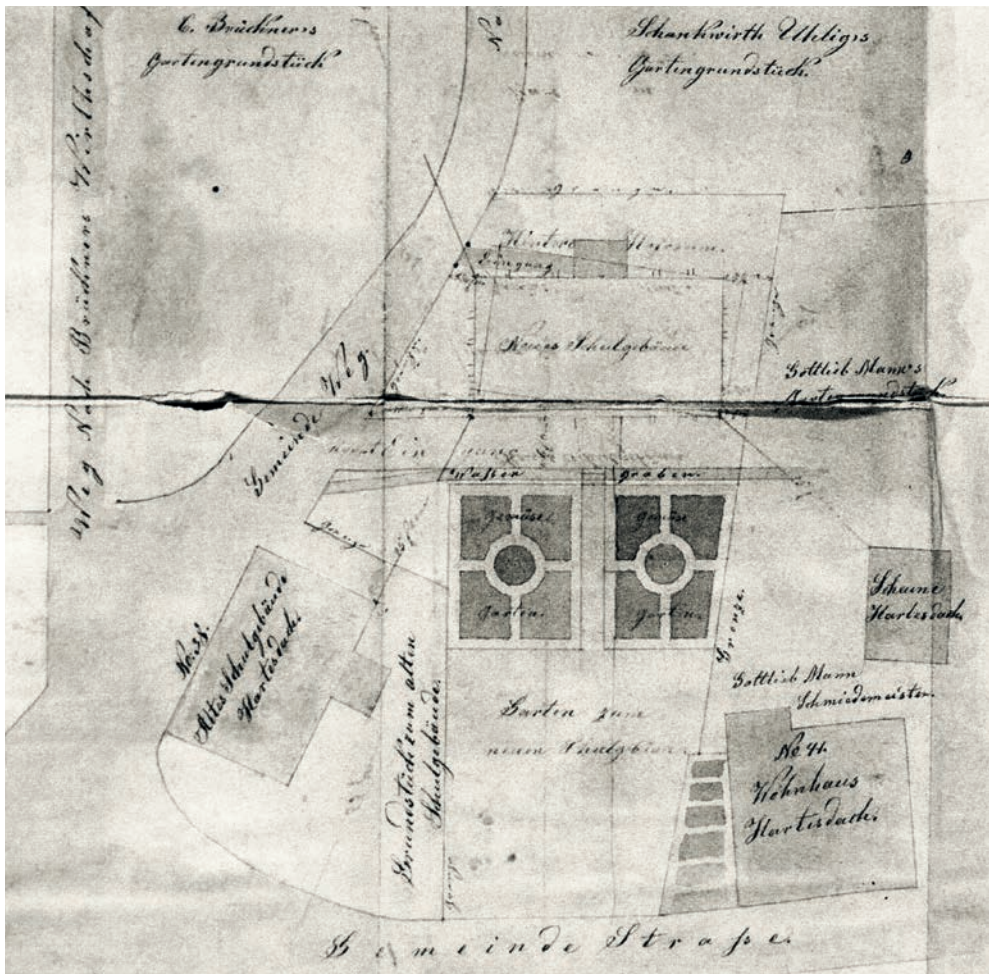 C. Brückners
Gartengrundstück
Schankwirth Uhligs
Gartengrundstück.
Weg Nach Brückners
Hinterer
Eingang
Neues Schulgebäude
Gottlieb Mann's
Gartengrundstück
Gemeinde Weg.
Wasser graben.
Gemüse
Garten.
Gemüse
Garten.
Grenze
Grenze.
Scheune
Hartesdach.
No. 38.
Altes Schulgebäude
Hartesdach.
Grundstück zum alten
Schulgebäude.
Garten zum
neuen Schulgebäude
Gottlieb Mann
Schmiedemeister.
No 41.
Wohnhaus
Hartesdach.
Gemeinde Strasse.